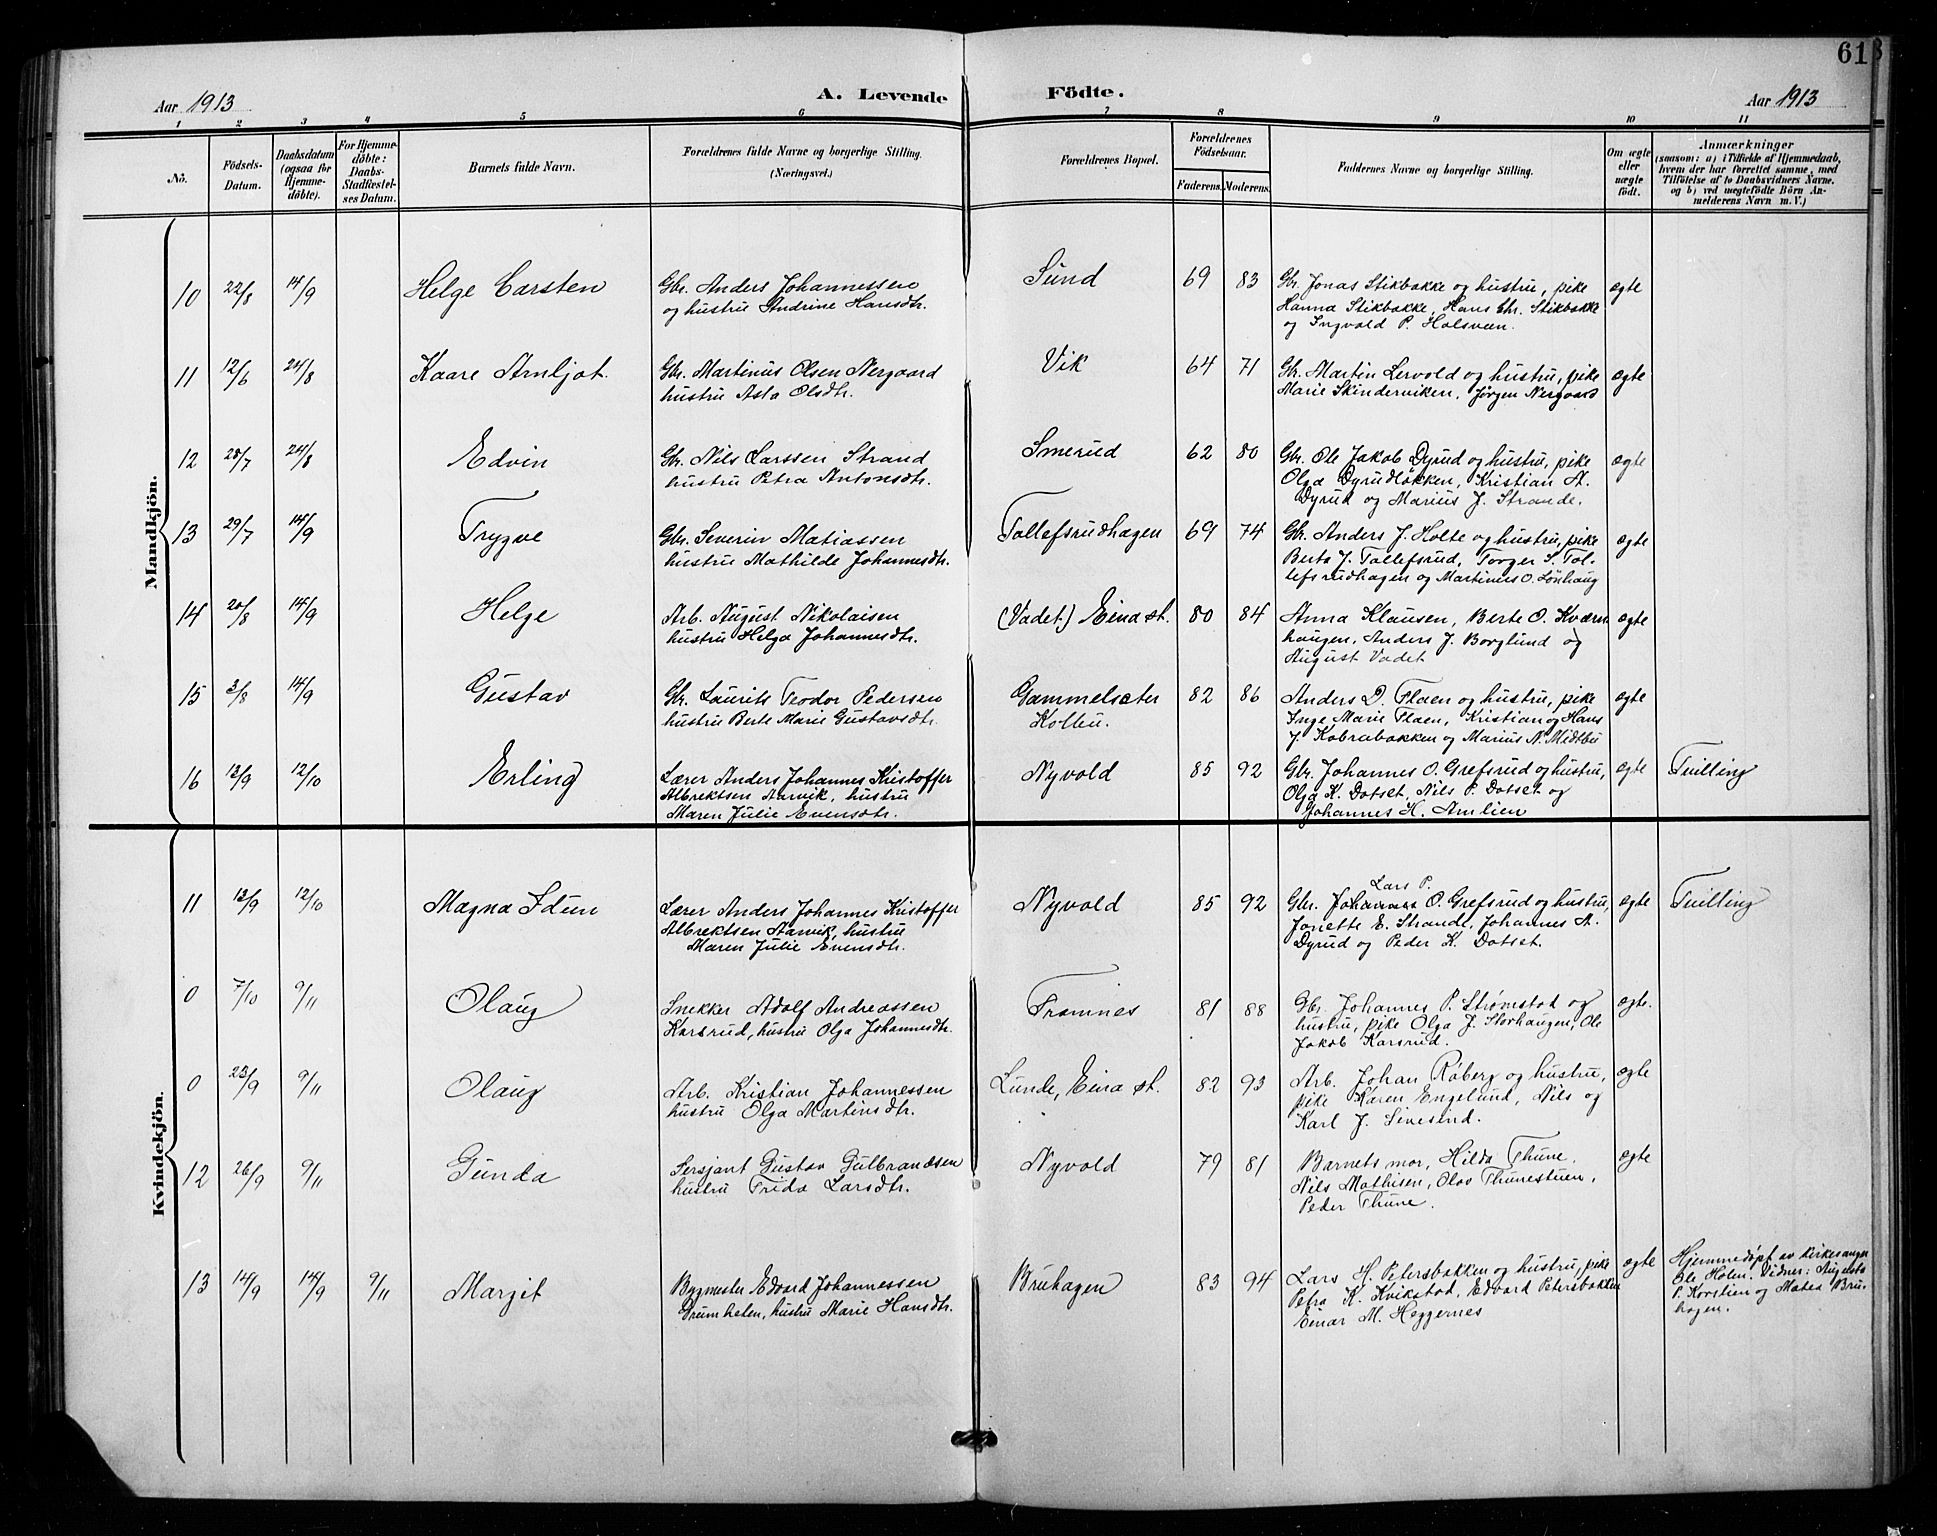 61
Aar 1913
A. Levende Födte.
Aar 1913
1 2 3 4 5 6 7 8 9 10 11
No.
Födsels-Datum.
Daabsdatum (ogsaa for Hjemme-döbte).
For Hjemme-döbte: Daabs-Stadfæstel-ses Datum.
Barnets fulde Navn.
Forældrenes fulde Navne og borgerlige Stilling.
(Næringsvei.)
Forældrenes Bopæl.
Forældrenes Födselsaar.
Faderens. Moderens.
Faddernes Navne og borgerlige Stilling.
Om ægte eller uægte födt.
Anmærkninger
(saasom: a) i Tilfælde af Hjemmedaab,
hvem der har forrettet samme, med
Tilföielse af to Daabsvidners Navne.
og b) ved uægtefödte Börn An-
melderens Navn m. V.)
Mandkjön.
10 22/8 14/9 Helge Carsten Gbr. Anders Johannessen Sund 69 83 Gbr. Jonas Stikbakke og hustru, pike ægte
og hustru Andrine Hansdtr. Hanna Stikbakke, Hans Chr. Stikbakke
og Ingvald P. Halsveen.
11 12/6 24/8 Kaare Arnljot. Gbr. Martinus Olsen Nergaard Vik 64 71 Gbr. Martin Lervold og hustru, pike ægte
hustru Asta Olsdtr. Marie Skinderviken, Jørgen Nergaard
12 28/7 24/8 Edvin Gbr. Nils Larssen Strand Smerud 62 80 Gbr. Ole Jakob Dyrud og hustru, pike ægte
hustru Petra Antonsdtr. Olga Dyrudløkken, Kristian A.
Dyrud og Marius J. Strande.
13 29/7 14/9 Trygve Gbr. Severin Matiassen Tollefsrudhagen 69 74 Gbr. Anders J. Holte og hustru, pike ægte
hustru Mathilde Johannesdtr. Berta J. Tollefsrud, Torger S. Tol-
lefsrudhagen og Martinus O. Lønhaug
14 20/8 14/9 Helge Arb. August Nikolaisen (Vadet) Eina st. 80 84 Anna Klausen, Berte O. Kværn ægte
hustru Helga Johannesdtr. haugen, Anders J. Borglund og
August Vadet
15 3/8 14/9 Gustav Gbr. Laurits Teodor Pedersen Gammelsæter 82 86 Anders D. Flaen og hustru, pike ægte
hustru Berte Marie Gustavsdtr. Kolbu. Inge Marie Flaen, Kristian og Hans
J. Kobrabakken og Marius N. Midtbu
16 13/9 12/10 Erling Lærer Anders Johannes Kristoffer Nyvold 85 92 Gbr. Johannes O. Grefsrud og hustru, ægte Tvilling
Albrektsen Aarvik, hustru Olga K. Dotset, Nils P. Dotset og
Maren Julie Evensdtr. Johannes H. Amlien
Kvindekjön.
11 13/9 12/10 Magna Idun Lærer Anders Johannes Kristoffer Nyvold 85 92 Gbr. Johannes Lars P. O. Grefsrud og hustru, ægte Tvilling
Albrektsen Aarvik, hustru Jonette E. Strande, Johannes A.
Maren Julie Evensdtr. Dyrud og Peder K. Dotset.
0 7/10 9/11 Olaug Snekker Adolf Andreassen Framnes 81 88 Gbr. Johannes P. Strømstad og ægte.
Karsrud, hustru Olga Johannesdtr. hustru, pike Olga J. Storhaugen, Ole
Jakob Karsrud.
0 23/9 9/11 Olaug Arb. Kristian Johannessen Lunde, Eina st. 82 93 Arb. Johan Røberg og hustru, ægte
hustru Olga Martinsdtr. pike Karen Engelund, Nils og
Karl J. Sivesind.
12 26/9 9/11 Gunda Sersjant Gustav Gulbrandsen Nyvold 79 81 Barnets mor, Hilda Thune. ægte
hustru Frida Larsdtr. Nils Mathisen, Olav Thunestuen,
Peder Thune.
13 14/9 14/9 9/11 Margit Bygmester Edvard Johannessen Bruhagen 83 94 Lars H. Petersbakken og hustru, pike ægte Hjemmedøpt av kirkesanger
Drumhelen, hustru Marie Hansdtr. Petra K. Kvikstad, Edvard Petersbakken Ole Holen. Vidner:
Einar M. Heggernes P. Korstien og Matea Bru-
hagen.